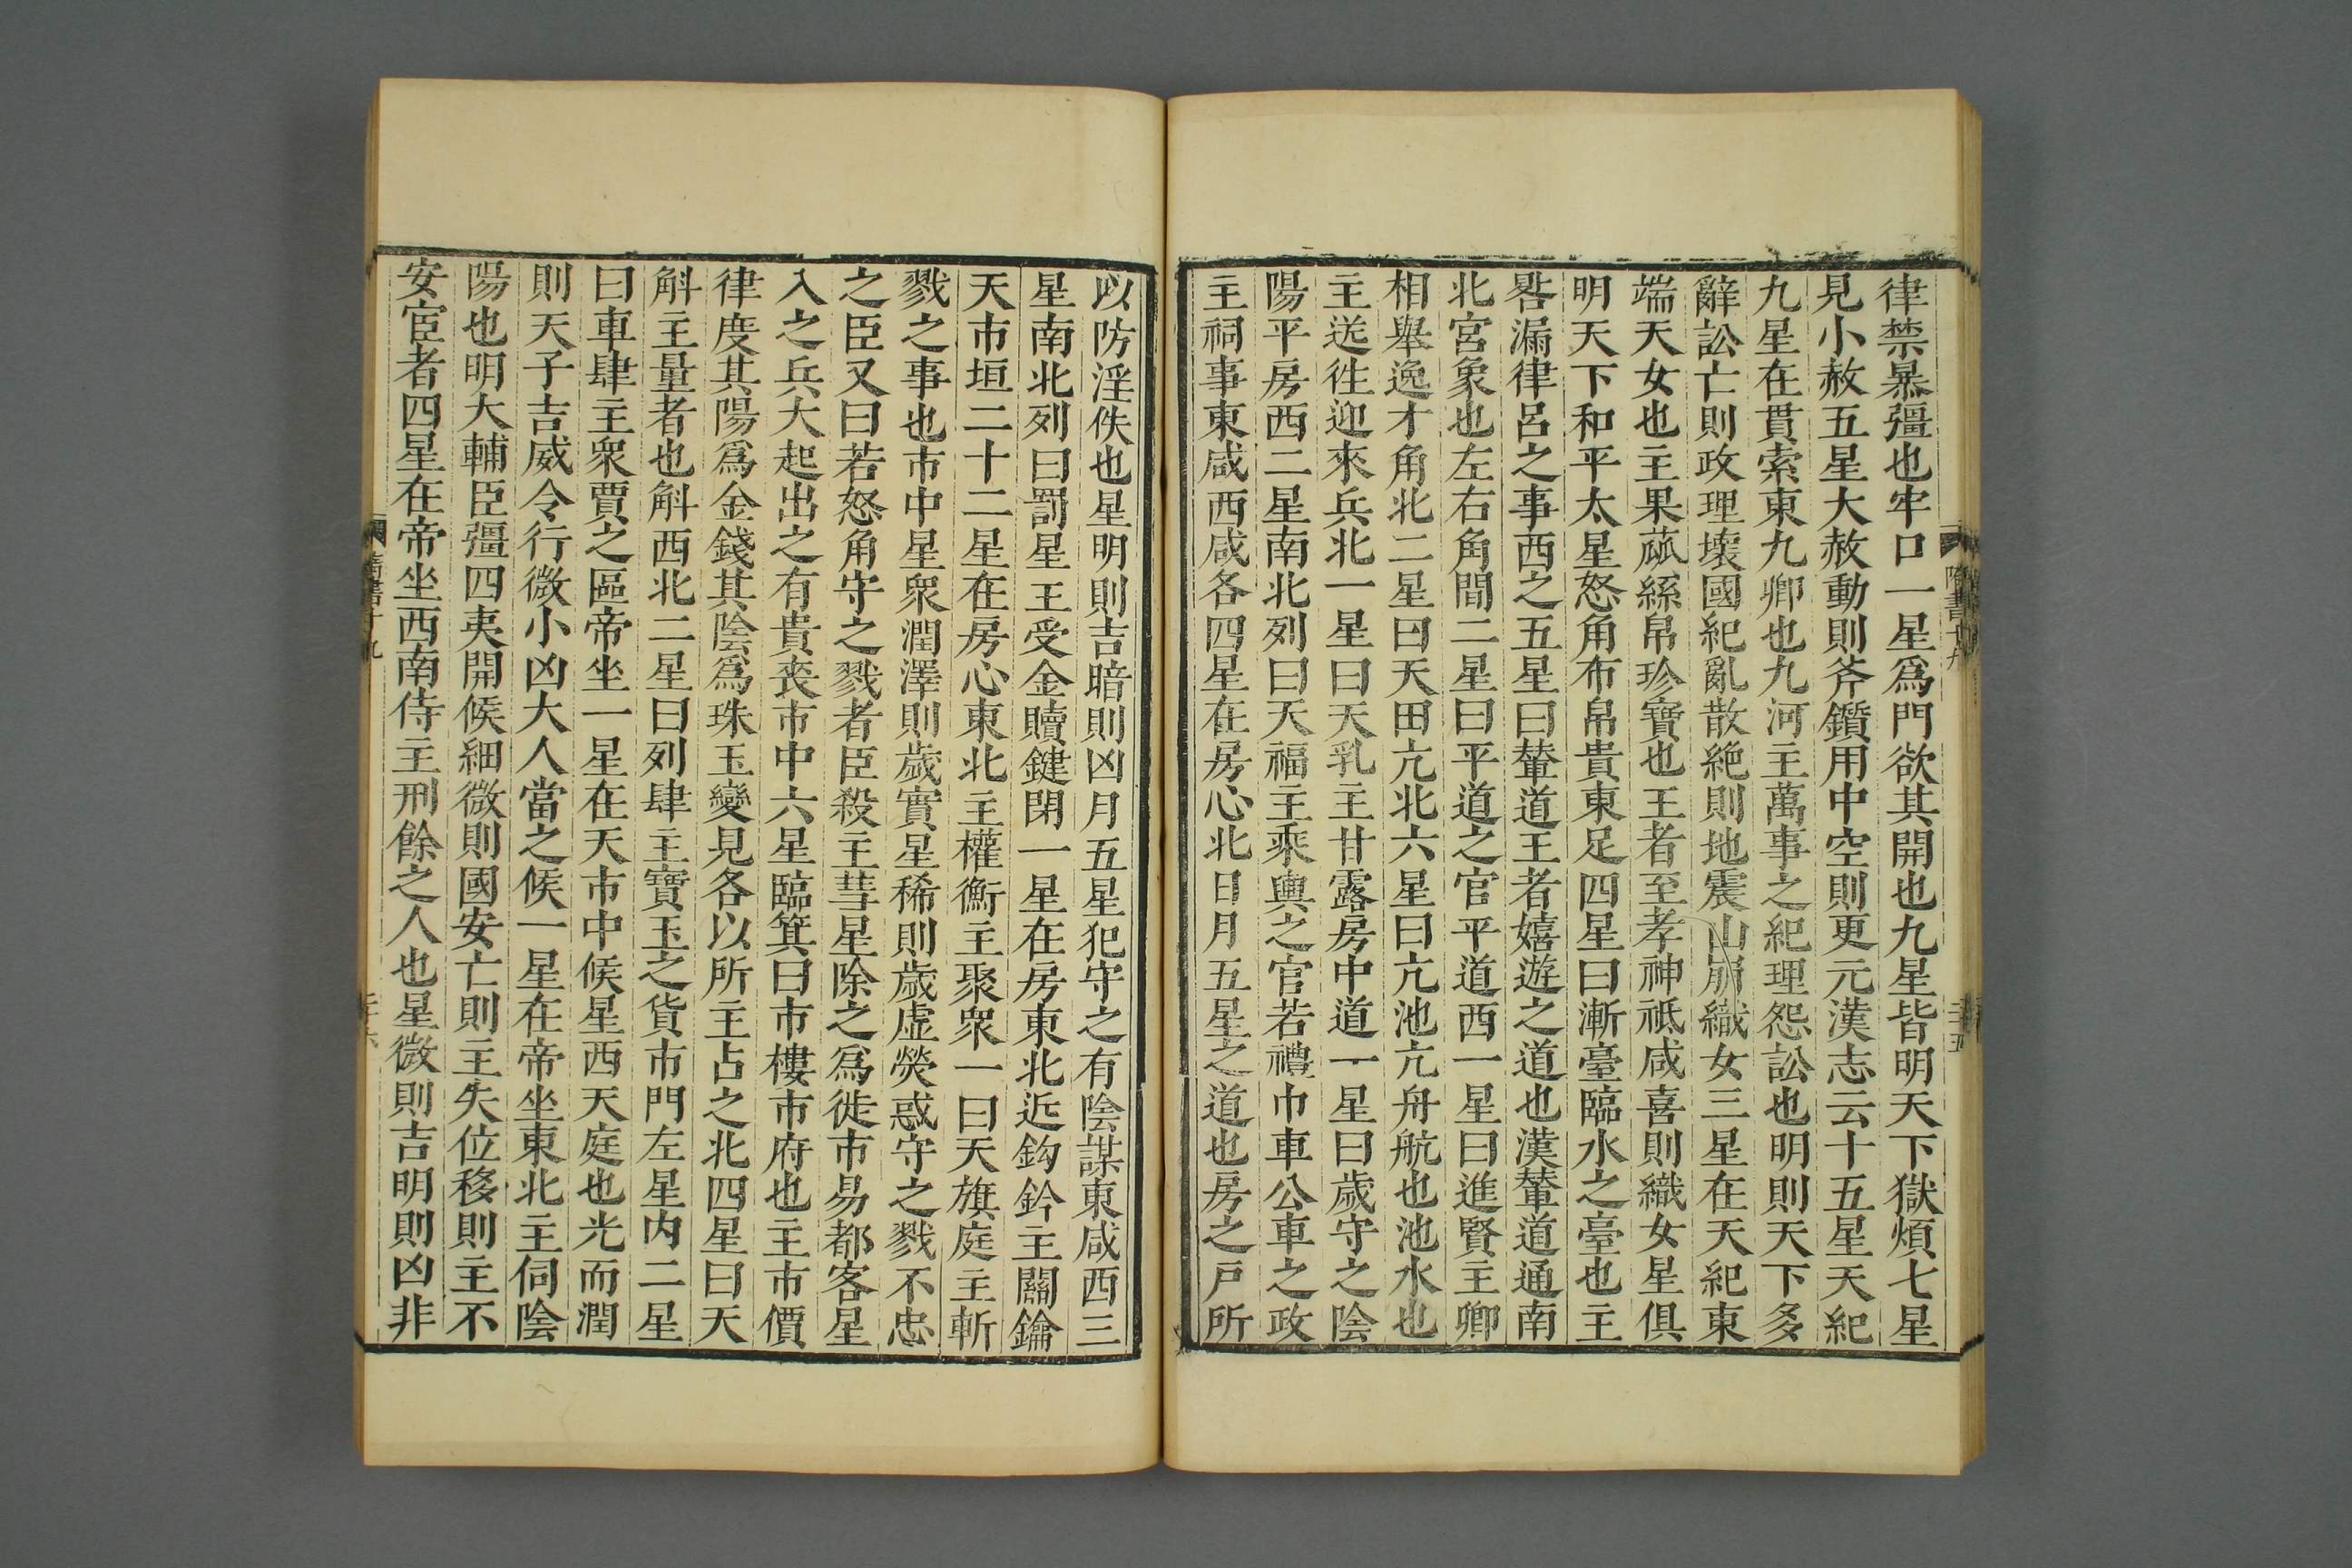 律禁暴彊也牢口一星爲門欲其開也九星皆明天下獄煩七星
見小赦五星大赦動則斧鑕用中空則更元漢志云十五星天紀
九星在貫索東九卿也九河主萬事之紀理怨訟也明則天下多
辭訟亡則政理壞國紀亂散絶則地震山崩織女三星在天紀東
端天女也主果蓏絲帛珍寶也王者至孝神祗咸喜則織女星俱
明天下和平太星怒角布帛貴東足四星曰漸臺臨水之臺也主
晷漏律呂之事西之五星曰輦道王者嬉遊之道也漢輦道通南
北宮象也左右角間二星曰平道之官平道西一星曰進賢主卿
相舉逸才角北二星曰天田亢北六星曰亢池亢舟航也池水也
主送徃迎來兵北一星曰天乳主甘露房中道一星曰歲守之陰
陽平房西二星南北列曰天福主乘輿之官若禮巾車公車之政
主祠事東咸西咸各四星在房心北日月五星之道也房之戸所
以防淫佚也星明則吉暗則凶月五星犯守之有陰謀東咸西三
星南北列曰罰星王受金贖鍵閉一星在房東北近鈎鈐主關鑰
天市垣二十二星在房心東北主權衡主聚衆一曰天旗庭主斬
戮之事也市中星衆潤澤則歲實星稀則歲虛熒惑守之戮不忠
之臣又曰若怒角守之戮者臣殺主彗星除之爲徙市易都客星
入之兵大起出之有貴喪市中六星臨箕曰市樓市府也主市價
律度其陽爲金錢其陰爲珠玉變見各以所主占之北四星曰天
斛主量者也斛西北二星曰列肆主寶玉之貨市門左星内二星
曰車肆主衆賈之區帝坐一星在天市中候星西天庭也光而潤
則天子吉威令行微小凶大人當之候一星在帝坐東北主伺陰
陽也明大輔臣彊四夷開候細微則國安亡則主失位移則主不
安宦者四星在帝坐西南侍主刑餘之人也星微則吉明則凶非